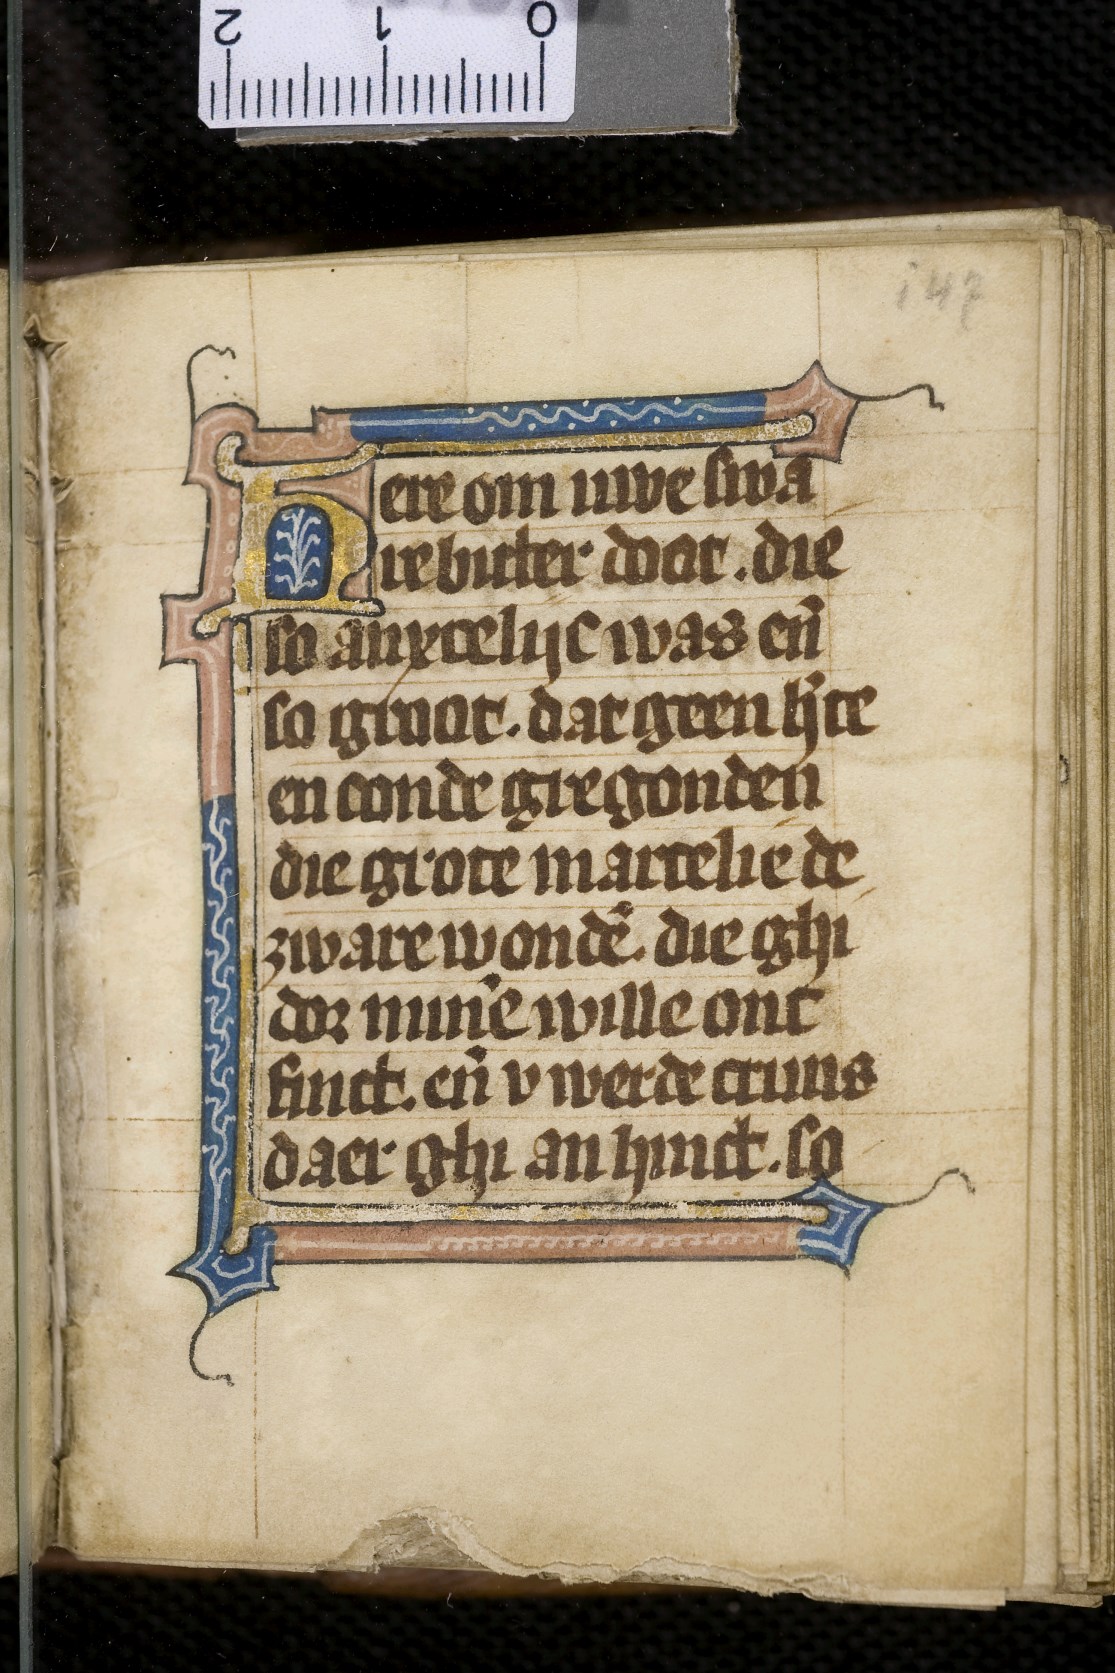 2 1 0
147
Here om uwe swa
re bitter doot. die
so anxtelijc was en̄
so groot. dat geen h̾te
en conde gregonden
die grote martelie de
zware wondē. die ghi
doꝛ minne wille ont
finct. en̄ v werde cruus
daer ghi an hinct. so